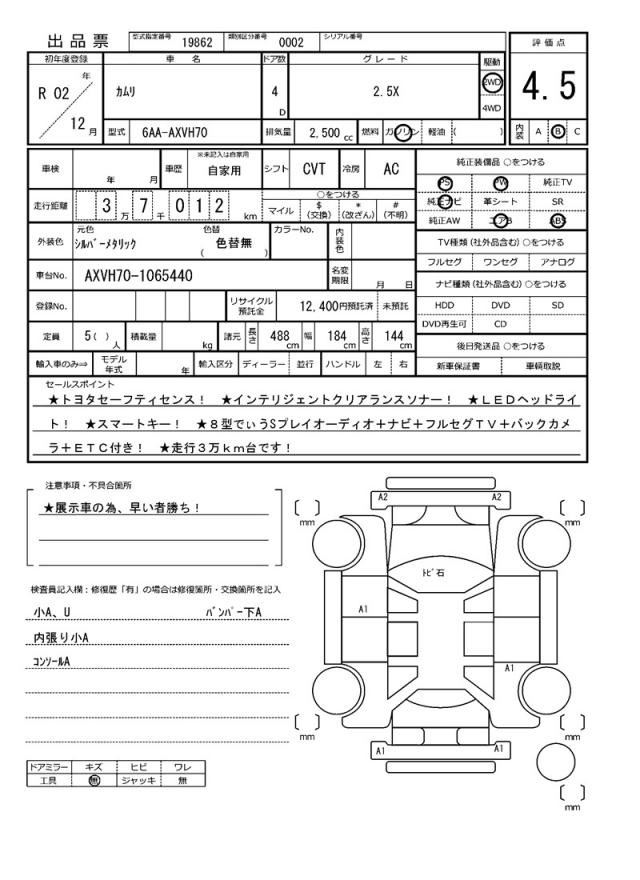 出品票 型式指定番号 19862 類別区分番号 0002 シリアル番号
評価点
4.5
内装 A B C
初年度登録 車名 ドア数 グレード 駆動
R 02 年 12 月 カムリ 4 D 2.5X 2WD 4WD
型式 6AA-AXVH70 排気量 2,500 cc 燃料 ガソリン 軽油 ( )
車検 年 月 車歴 ※未記入は自家用 自家用 シフト CVT 冷房 AC
走行距離 3 万 7 千 0 1 2 km
○をつける
マイル $ (交換) * (改ざん) # (不明)
外装色 元色 シルバーメタリック 色替 ( 色替無 ) カラーNo. 内装色
車台No. AXVH70-1065440 名変期限 月 日
登録No. リサイクル預託金 12,400円預託済 未預託
定員 5( ) 人 積載量 kg 諸元 長さ 488 cm 幅 184 cm 高さ 144 cm
輸入車のみ⇒ モデル年式 年 輸入区分 ディーラー 並行 ハンドル 左 右
純正装備品 ○をつける
PS PW 純正TV
純正ナビ 革シート SR
純正AW エアB ABS
TV種類(社外品含む)○をつける
フルセグ ワンセグ アナログ
ナビ種類(社外品含む)○をつける
HDD DVD SD
DVD再生可 CD
後日発送品 ○をつける
新車保証書 車輌取説
セールスポイント
★トヨタセーフティセンス! ★インテリジェントクリアランスソナー! ★LEDヘッドライ
ト! ★スマートキー! ★8型でぃうSプレイオーディオ+ナビ+フルセグTV+バックカメ
ラ+ETC付き! ★走行3万km台です!
注意事項・不具合箇所
★展示車の為、早い者勝ち!
検査員記入欄:修復歴「有」の場合は修復箇所・交換箇所を記入
小A、U バンパー下A
内張り小A
コンソールA
ドアミラー キズ ヒビ ワレ
工具 無 ジャッキ 無
A2 A2
mm mm
トビ石
A1
A1
mm mm
A1 A1
mm